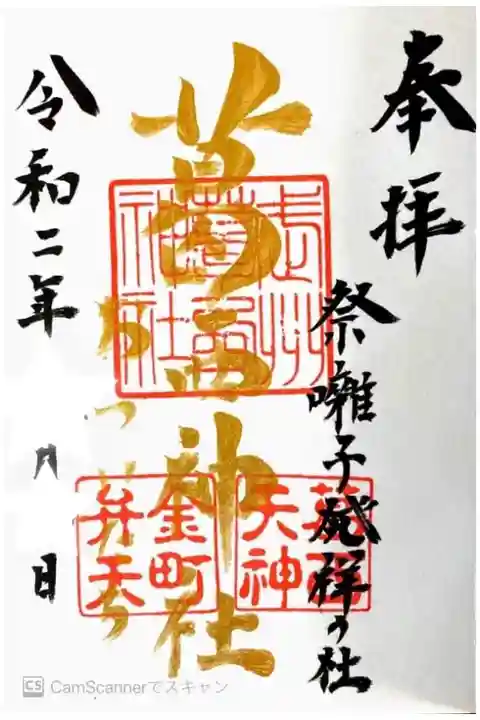 奉拝
祭囃子発祥の社
葛西神社
武州
葛西
神社
葛西
天神
金町
弁天
令和二年
月 日
CS CamScannerでスキャン